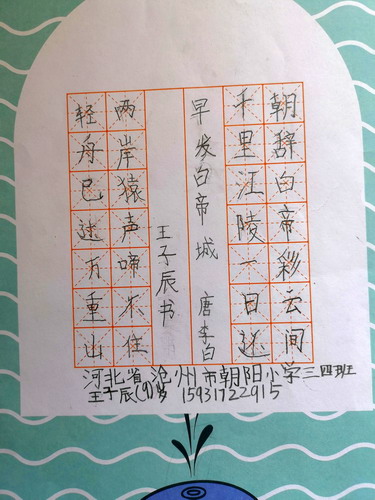 朝辞白帝彩云间
千里江陵一日还
早发白帝城 唐李白
王子辰书
两岸猿声啼不住
轻舟已过万重山
河北省沧州市朝阳小学三四班
王子辰(9)岁 15931722915